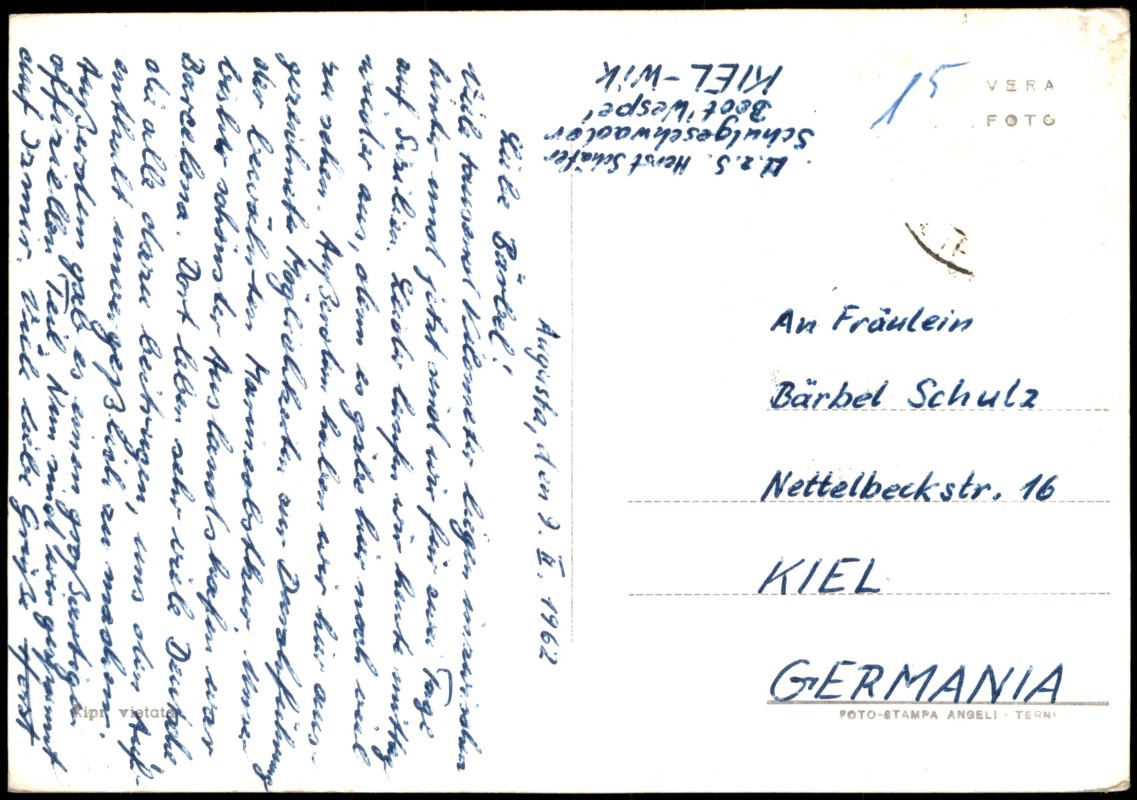 Augusta, den 9. II. 1962
Liebe Bärbel!
Viele tausend Kilometer liegen inzwischen
hinter und jetzt sind wir für zwei Tage
auf Sizilien. Leider laufen wir heute mittag
wieder aus, denn es gäbe hier noch viel
zu sehen. Außerdem haben wir hier aus-
gezeichnete Möglichkeiten zur Durchführung
der bewährten Manneslthur. Unser
bisher schönster Auslandshafen war
Barcelona. Dort leben sehr viele Deutsche
die alle dazu beitrugen, uns den Auf-
enthalt unvergeßlich zu machen.
Außerdem gab es einen großartigen
offiziellen Teil. Nun sind wir gespannt
auf Izmir. Viele liebe Grüße Horst
U.z.S. Horst Schäfer
Schulgeschwader
Boot "Wespe"
KIEL-Wik
15
VERA
FOTO
An Fräulein
Bärbel Schulz
Nettelbeckstr. 16
KIEL
GERMANIA
FOTO-STAMPA ANGELI - TERNI
Ripr. vietata